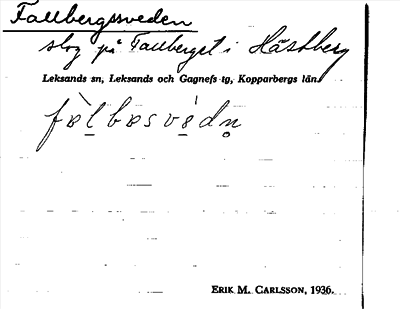 Fallbergssveden
slog på Fallberget i Hästberg
Leksands sn, Leksands och Gagnefs tg, Kopparbergs län.
fæ̀l̠bæsvé̠dn̥
ERIK M. CARLSSON, 1936.